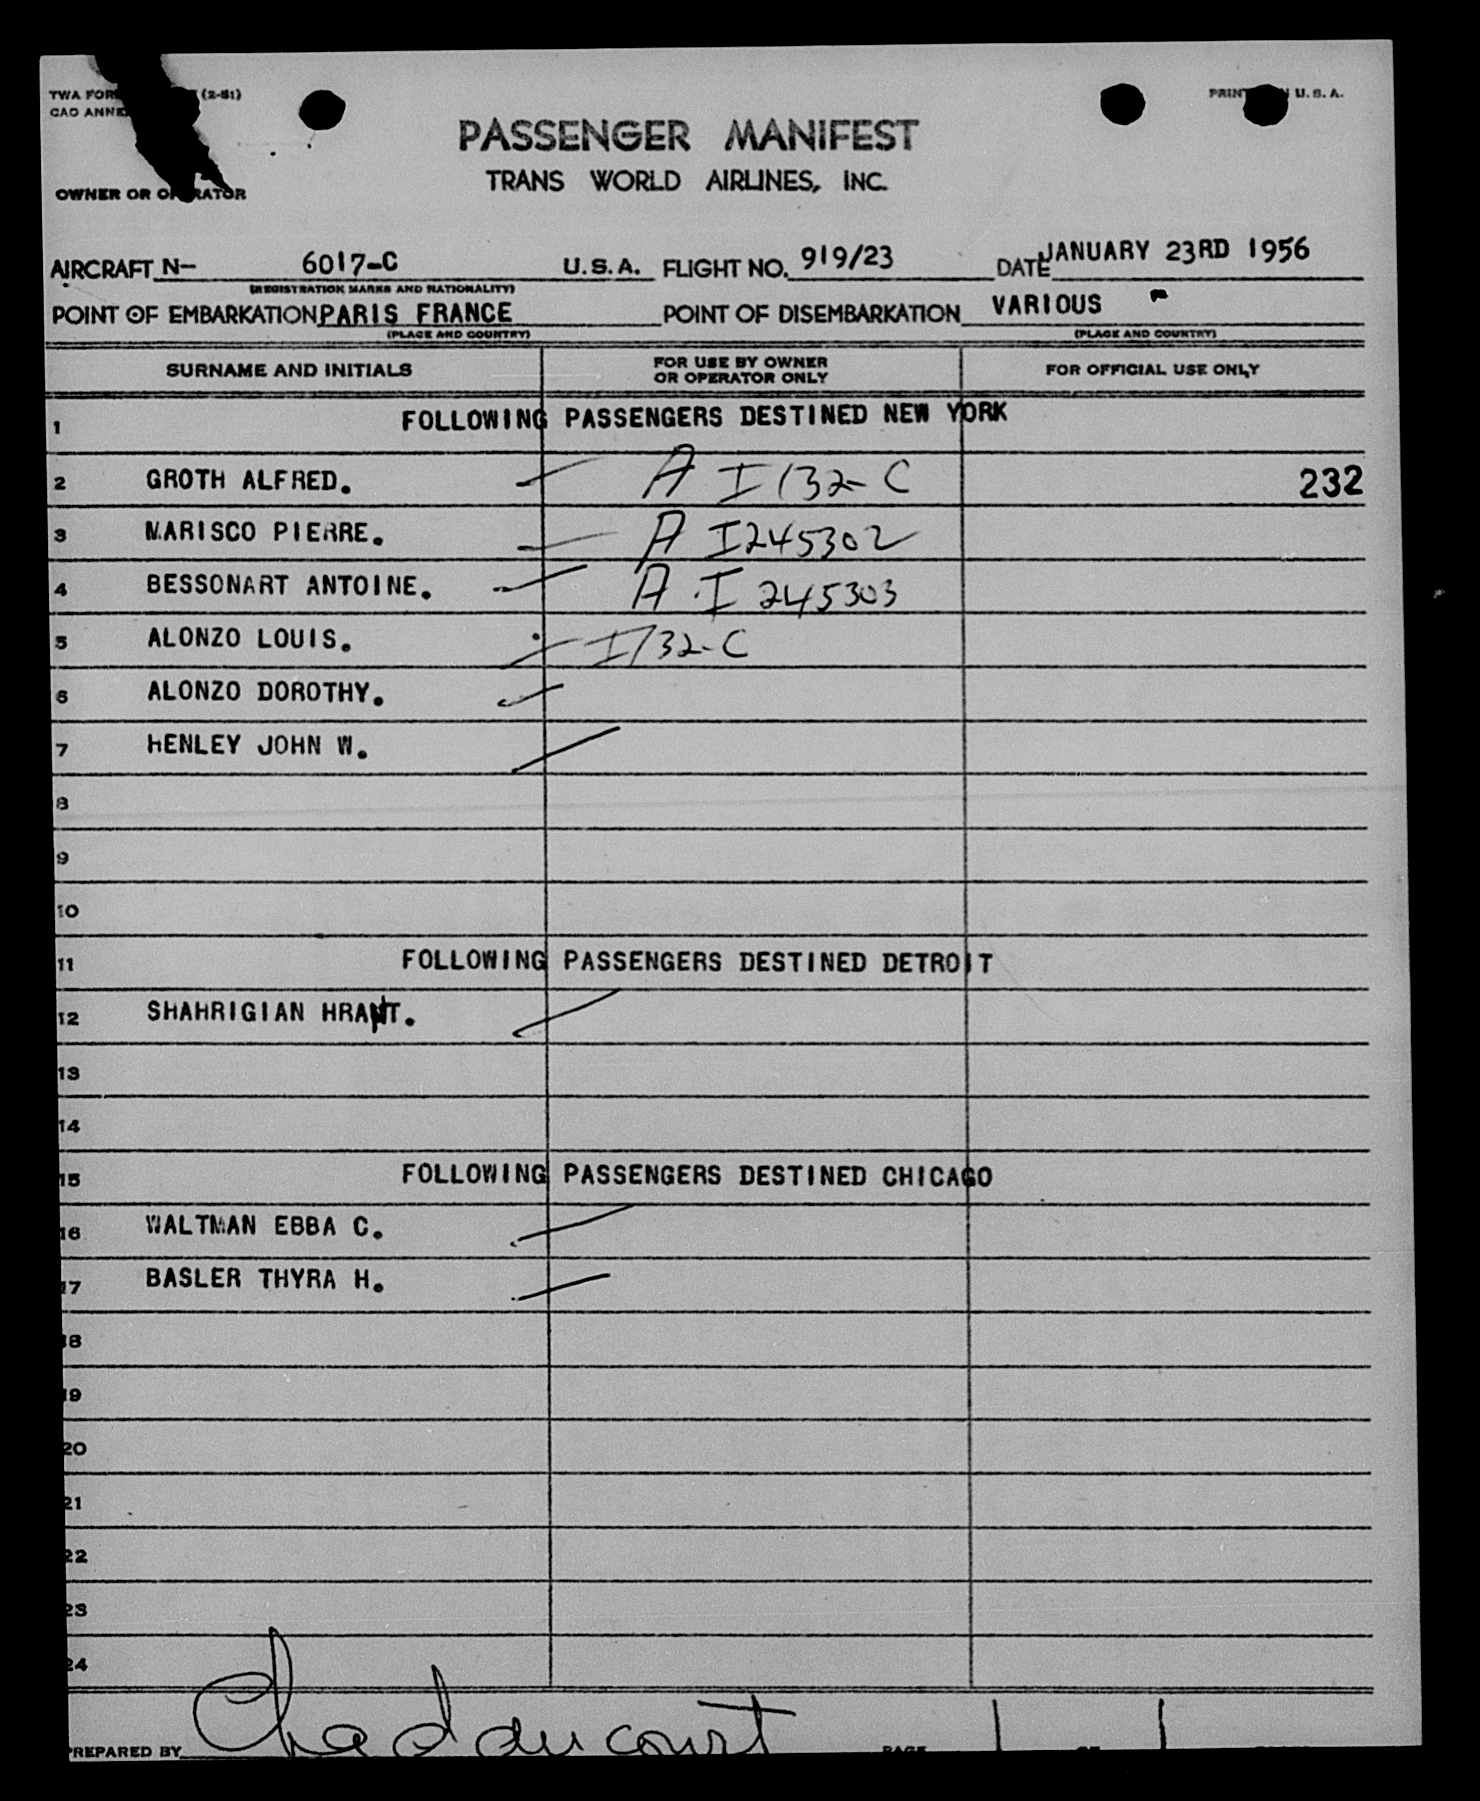 TWA FOR (2-51)
PRIN U.S.A.
CAO ANNE
PASSENGER MANIFEST
TRANS WORLD AIRLINES, INC.
OWNER OR OPERATOR
AIRCRAFT N- 6017-C U.S.A. FLIGHT NO. 919/23 DATE JANUARY 23RD 1956
(REGISTRATION MARKS AND NATIONALITY)
POINT OF EMBARKATION PARIS FRANCE POINT OF DISEMBARKATION VARIOUS
(PLACE AND COUNTRY) (PLACE AND COUNTRY)
SURNAME AND INITIALS FOR USE BY OWNER OR OPERATOR ONLY FOR OFFICIAL USE ONLY
1 FOLLOWING PASSENGERS DESTINED NEW YORK
2 GROTH ALFRED. A I 132-C 232
3 MARISCO PIERRE. A I245302
4 BESSONART ANTOINE. A I 245303
5 ALONZO LOUIS. I 132-C
6 ALONZO DOROTHY.
7 HENLEY JOHN W.
8
9
10
11 FOLLOWING PASSENGERS DESTINED DETROIT
12 SHAHRIGIAN HRANT.
13
14
15 FOLLOWING PASSENGERS DESTINED CHICAGO
16 WALTMAN EBBA C.
17 BASLER THYRA H.
18
19
20
21
22
23
24
PREPARED BY PAGE 1 OF 1